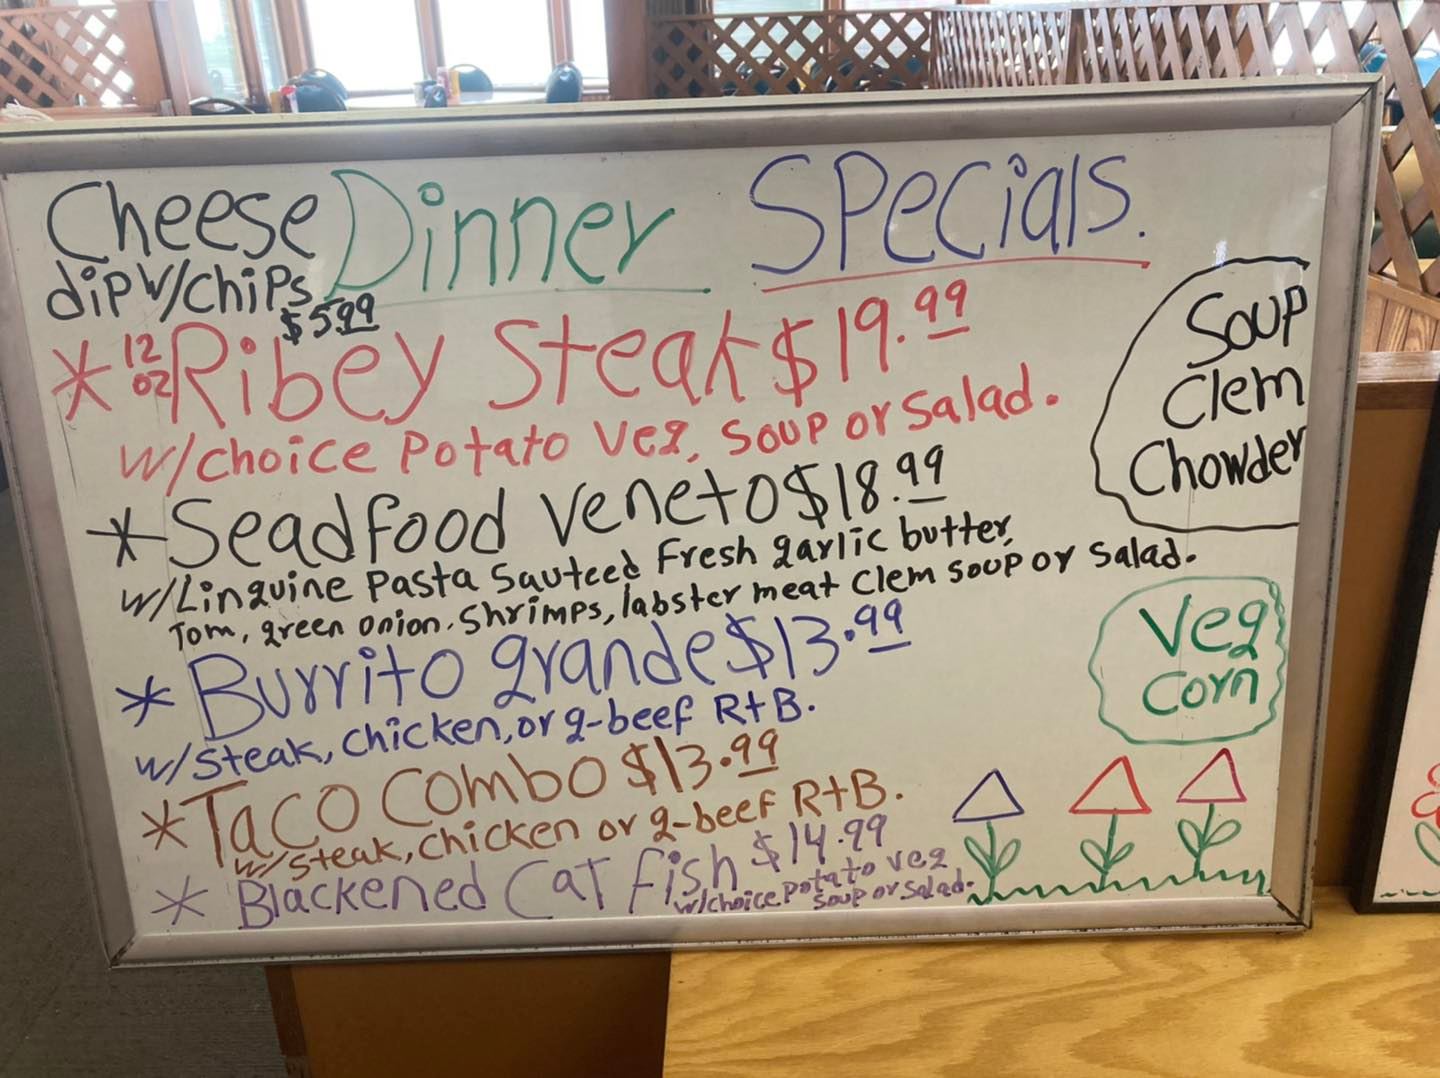 Cheese Dinner Specials.
dip w/chips
$5.99
* 12 oz Ribey Steak $19.99
w/choice Potato Veg, Soup or Salad.
* Seadfood Veneto $18.99
w/Linguine Pasta Sauteed Fresh garlic butter,
Tom, green onion. Shrimps, labster meat Clem soup or Salad.
* Burrito grande $13.99
w/steak, chicken, or g-beef R+B.
* Taco Combo $13.99
w/steak, chicken or g-beef R+B.
* Blackened Cat fish $14.99
w/choice potato veg
soup or salad.
Soup
Clem
Chowder
Veg
Corn